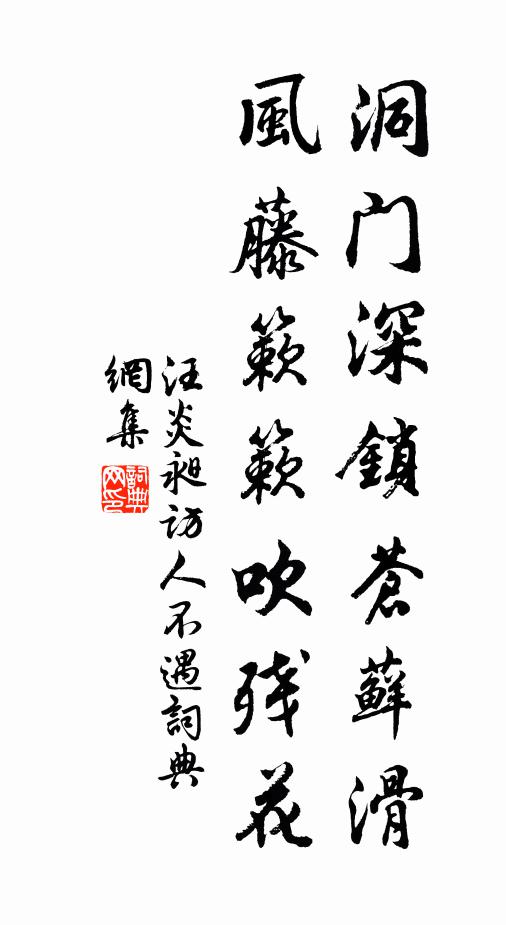 洞门深鎖蒼蘚滑
風藤簌簌吹残花
汪炎昶访人不遇詞典
網集
詞典
网印